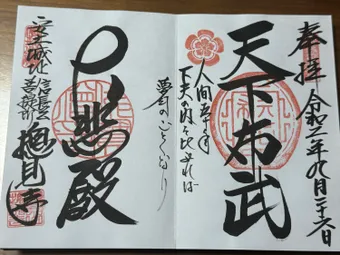 奉拝
令和二年九月二十六日
天下布武
人間五十年
下天の内を比ぶれば
夢幻のごとくなり
殿
安土城址
信長公
菩提所
摠見寺